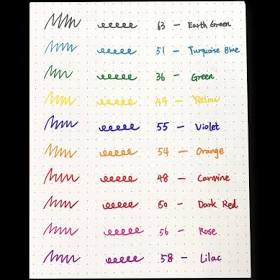 63 — Earth Green
51 — Turquoise Blue
36 — Green
44 — Yellow
55 — Violet
54 — Orange
48 — Carmine
50 — Dark Red
56 — Rose
58 — Lilac